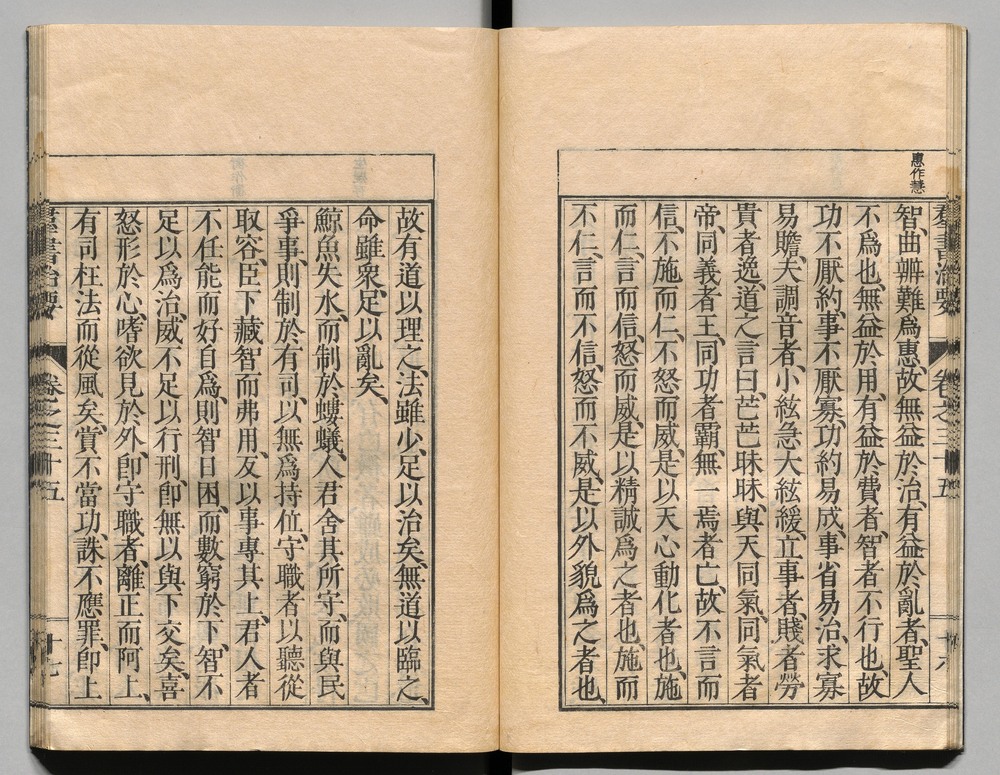 惠作慧
羣書治要 卷之三十五 十六
智、曲辯難爲惠、故無益於治、有益於亂者、聖人
不爲也、無益於用、有益於費者、智者不行也、故
功不厭約、事不厭寡、功約易成、事省易治、求寡
易贍、夫調音者、小絃急大絃緩、立事者、賤者勞
貴者逸、道之言曰、芒芒昧昧、與天同氣、同氣者
帝、同義者王、同功者霸、無一焉者亡、故不言而
信、不施而仁、不怒而威、是以天心動化者也、施
而仁、言而信、怒而威、是以精誠爲之者也、施而
不仁、言而不信、怒而不威、是以外貌爲之者也、
故有道以理之、法雖少、足以治矣、無道以臨之、
命雖衆、足以亂矣、
鯨魚失水、而制於螻蟻、人君舍其所守、而與民
爭事、則制於有司、以無爲持位、守職者以聽從
取容、臣下藏智而弗用、反以事專其上、君人者
不任能而好自爲、則智日困、而數窮於下、智不
足以爲治、威不足以行刑、卽無以與下交矣、喜
怒形於心、嗜欲見於外、卽守職者、離正而阿上、
有司枉法而從風矣、賞不當功、誅不應罪、卽上
羣書治要 卷之三十五 十七